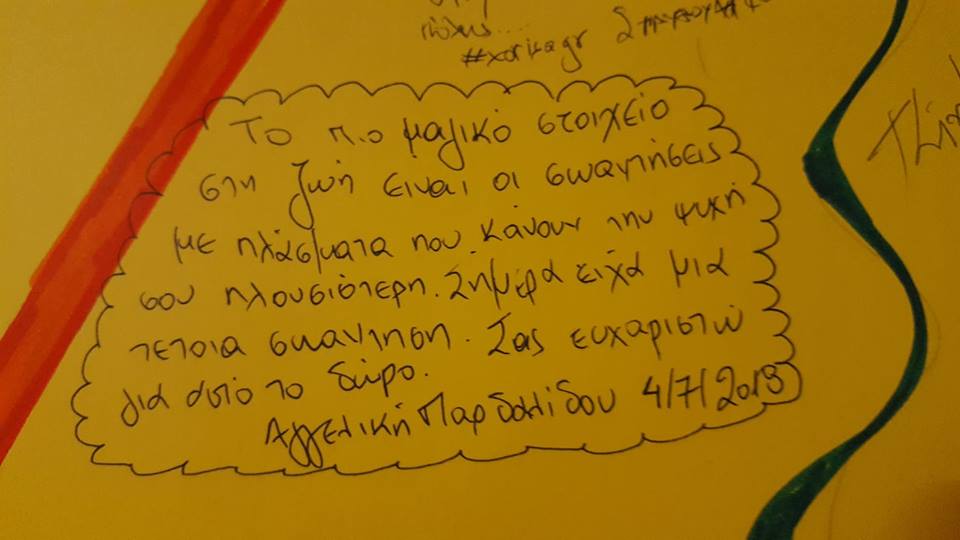 πόλης...
#xorikagr
Το πιο μαγικό στοιχείο
στη ζωή ειναι οι συναντήσεις
με πλάσματα που κάνουν την ψυχή
σου πλουσιότερη. Σήμερα είχα μια
τετοια συνάντηση. Σας ευχαριστώ
για αυτό το δώρο.
Αγγελική Παρδαλίδου 4/7/2013